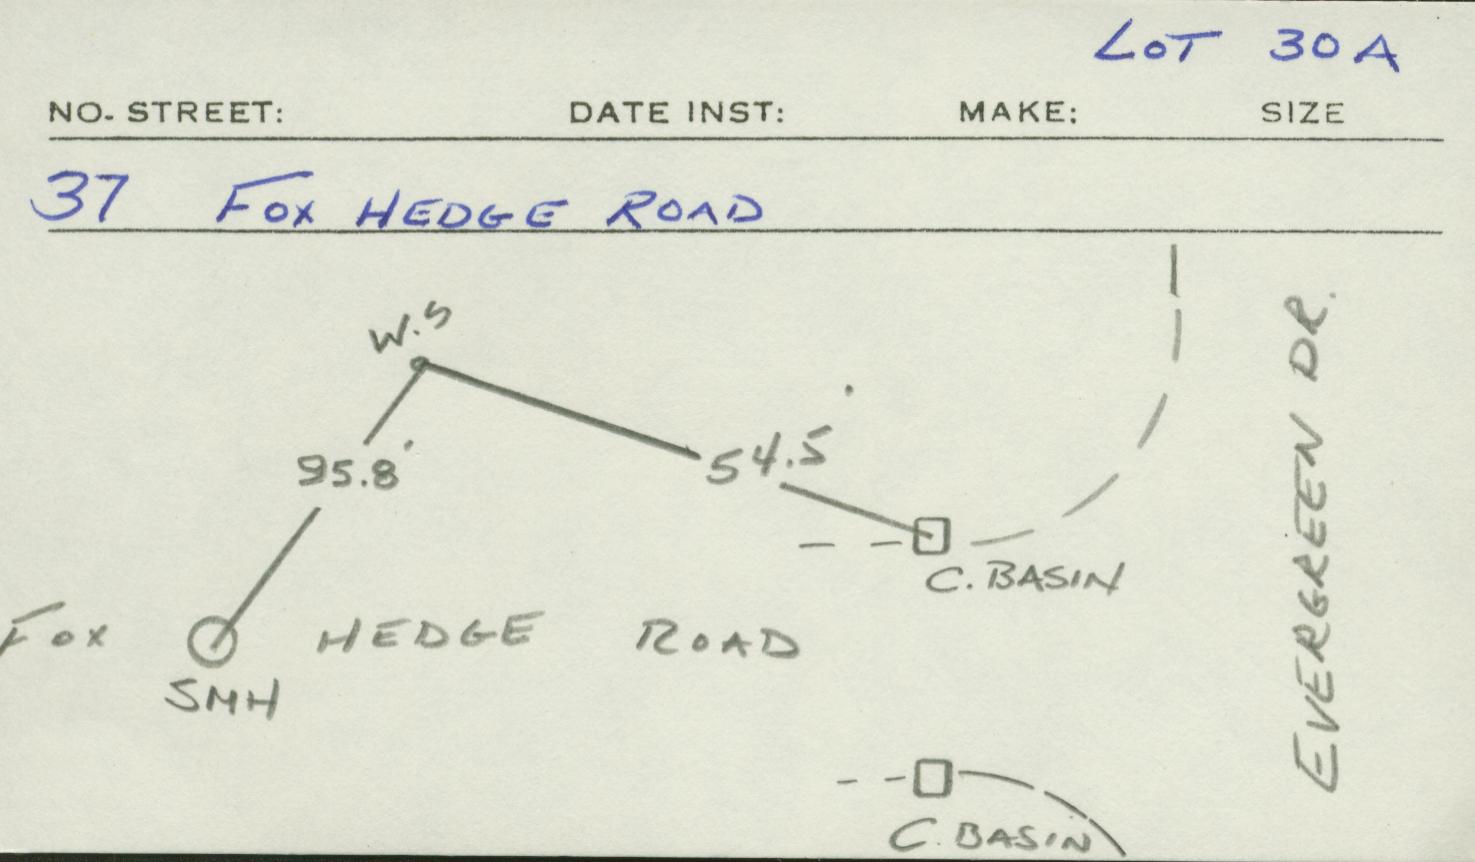 LOT 30A
NO. STREET: DATE INST: MAKE: SIZE
37 FOX HEDGE ROAD
W.S
EVERGREEN DR.
95.8'
54.5'
C. BASIN
FOX HEDGE ROAD
SMH
C. BASIN